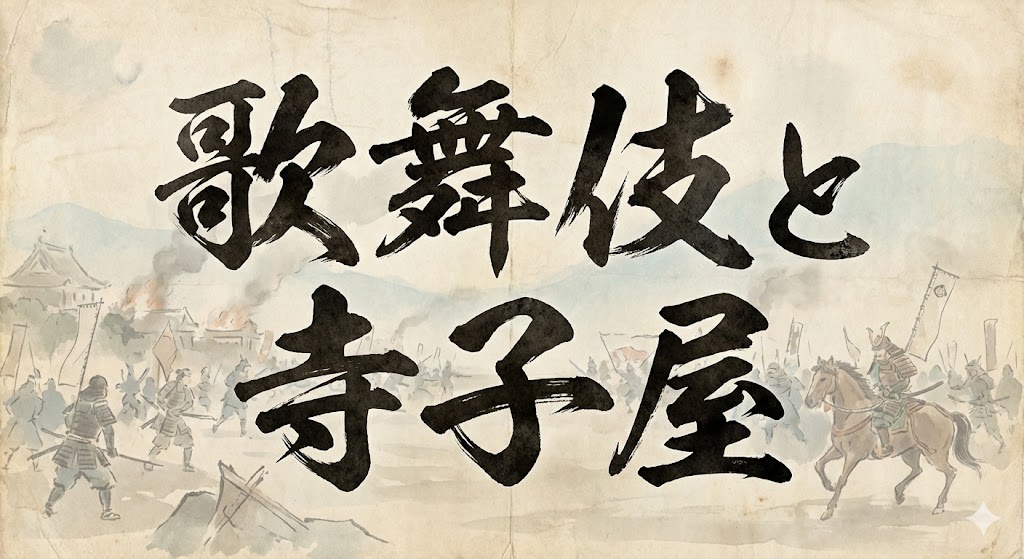 歌舞伎と
寺子屋